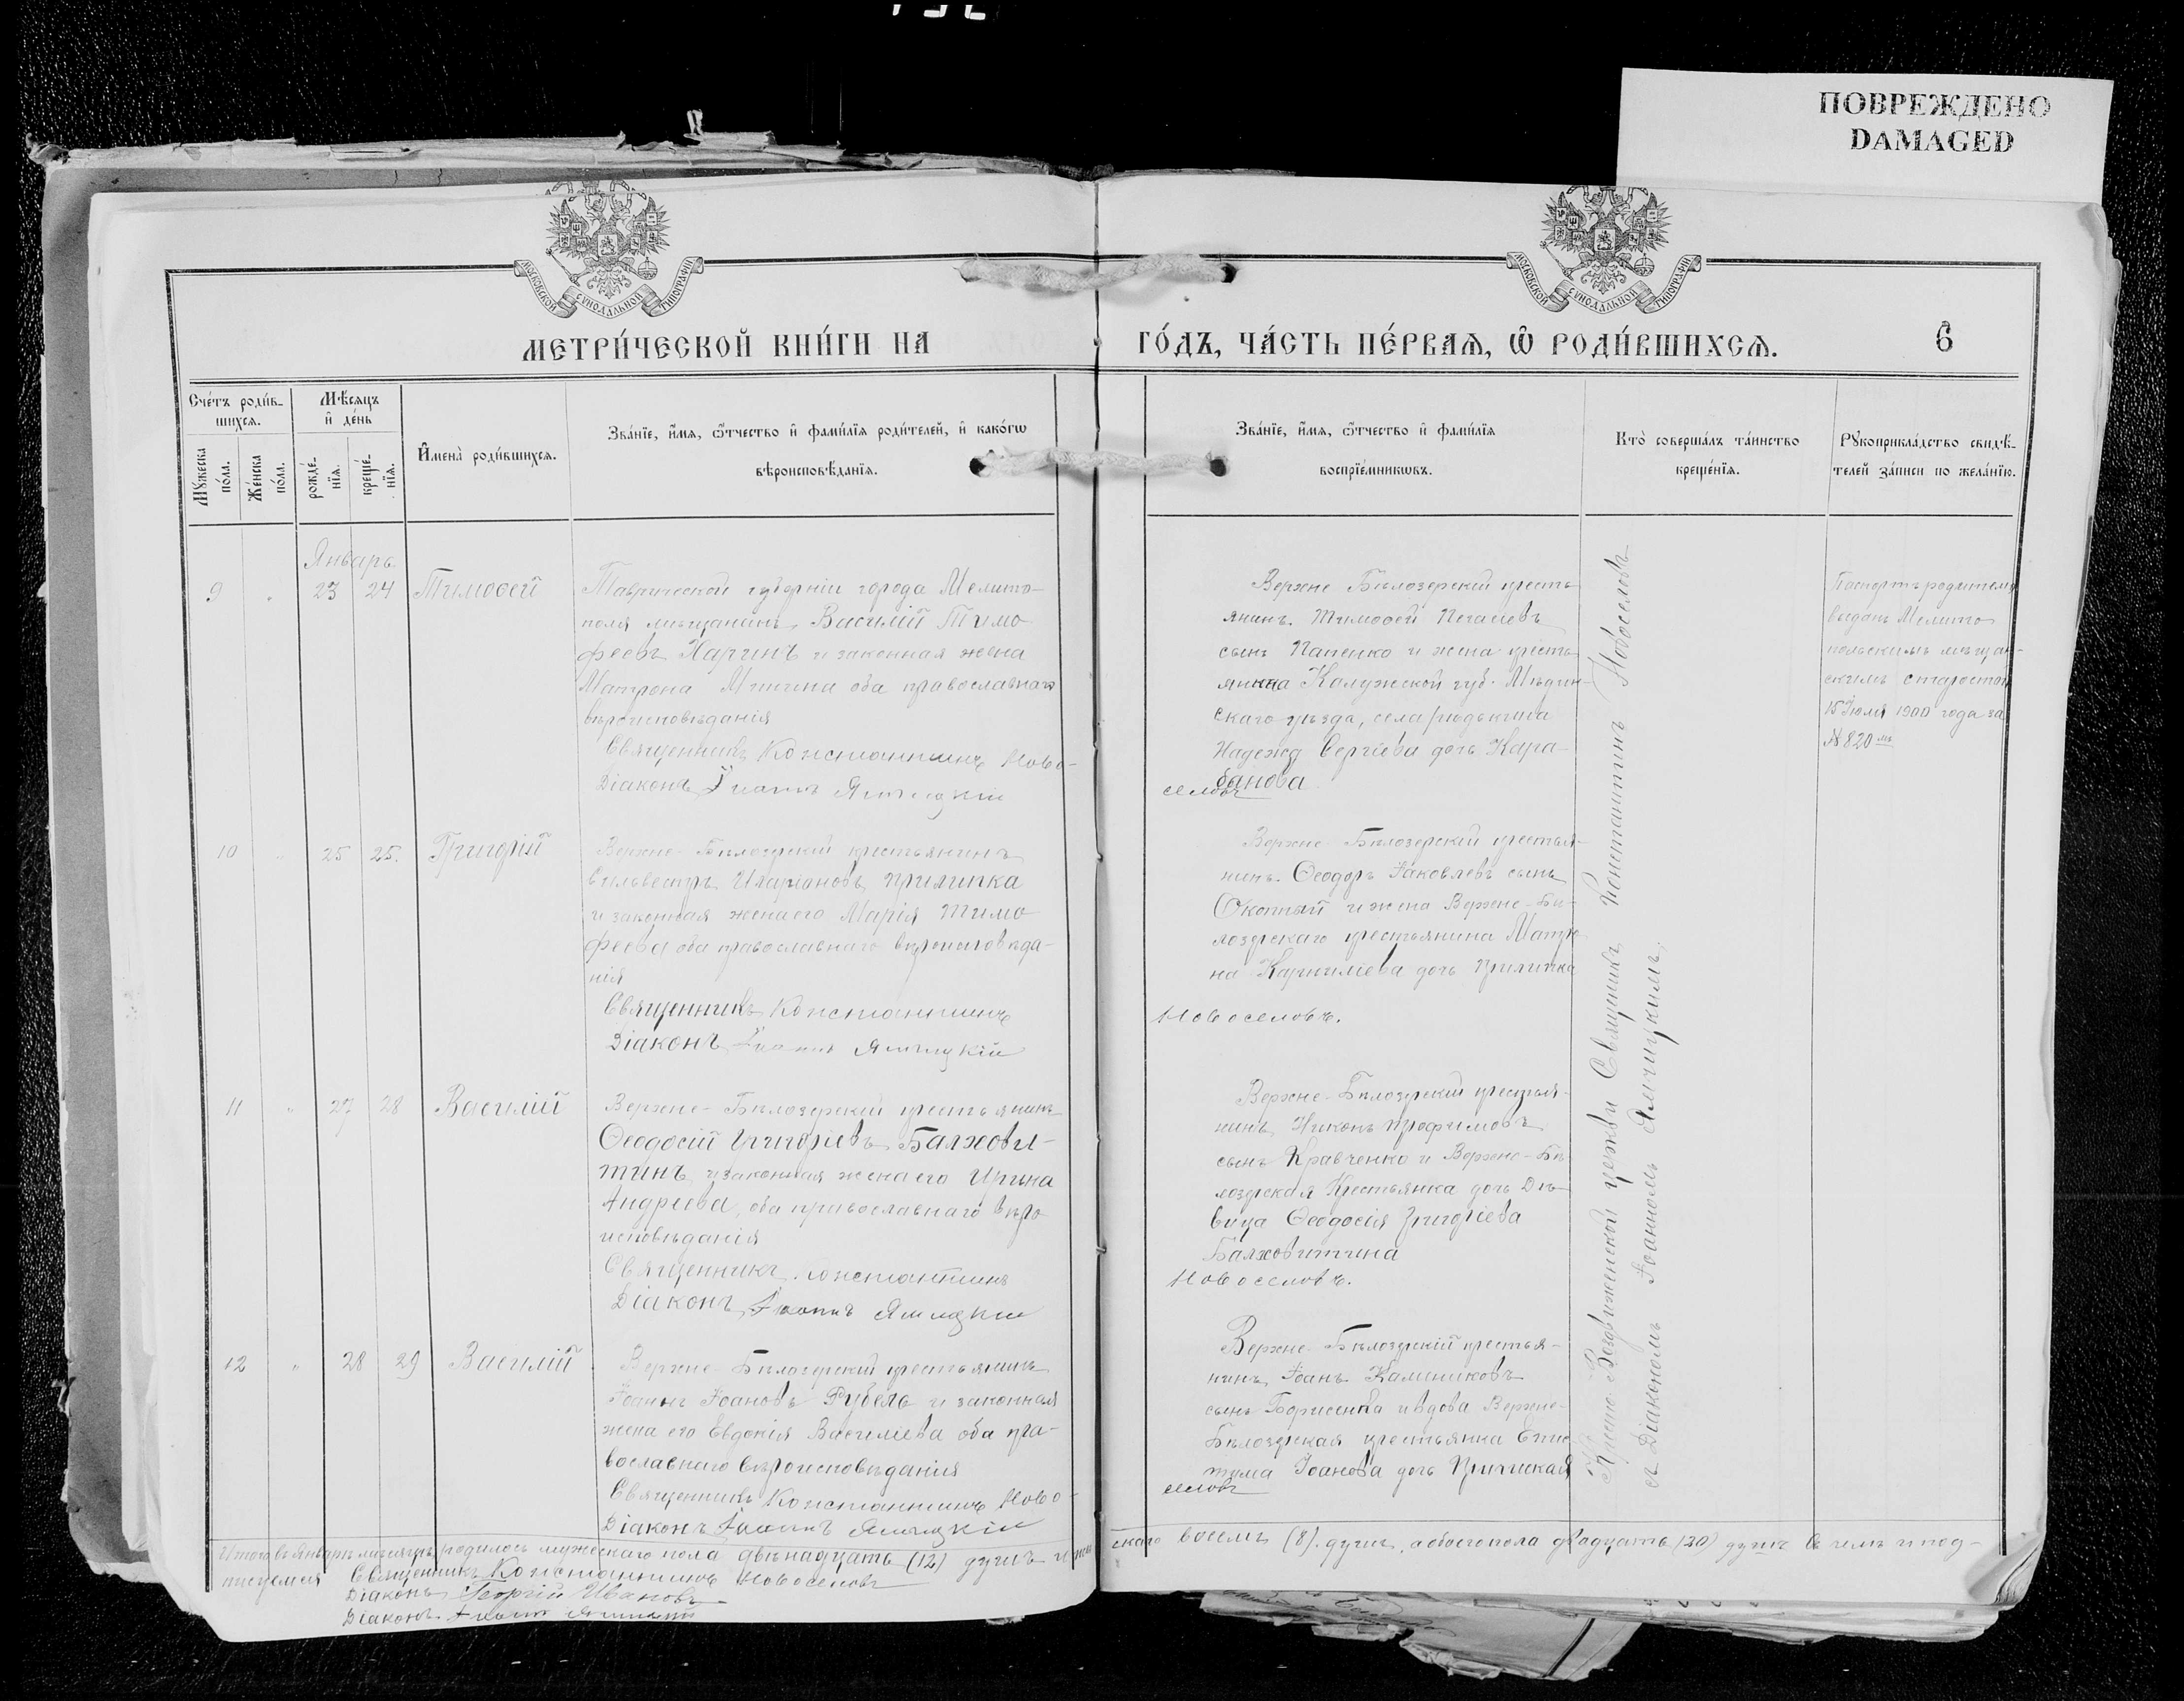 ПОВРЕЖДЕНО
DAMAGED
МОСКОВСКОЙ СѴНОДАЛЬНОЙ ТИПОГРАФІИ
МОСКОВСКОЙ СѴНОДАЛЬНОЙ ТИПОГРАФІИ
МЕТРИ́ЧЕСКОЙ КНИ́ГИ НА
ГО́ДЪ, ЧА́СТЬ ПЕ́РВАѦ, Ѡ҆ РОДИ́ВШИХСѦ.
6
Сче́тъ роди́в-
шихсѧ.
Мꙋ́жеска
по́ла.
Же́нска
по́ла.
Мѣ́сѧцъ
и҆ де́нь
рожде́-
нїѧ.
креще́-
нїѧ.
И҆мена̀ роди́вшихсѧ.
Зва́нїе, и҆́мѧ, ѻ҆́тчество и҆ фами́лїѧ роди́телей, и҆ како́гѡ
вѣроисповѣ́данїѧ.
Зва́нїе, и҆́мѧ, ѻ҆́тчество и҆ фами́лїѧ
воспрїе́мникѡвъ.
Кто̀ соверша́лъ та́инство
креще́нїѧ.
Рꙋкоприкла́дство свидѣ́-
телей за́писи по жела́нїю.
Январь
9 " 23 24 Тимоѳей
Таврической губерніи города Мелито-
поля мѣщанинъ Василій Тимо
феевъ Харинъ и законная жена
Матрона Минина оба православнаго
вѣроисповѣданія
Священникъ Константинъ Ново-
Діаконъ Іоаннъ
Верхне Бѣлозерскій кресть
янинъ Тимоѳей
сынъ Папенко и жена кресть
янина Калужской губ. Мѣдын-
скаго уѣзда, села
Надежд Сергіева дочь Кара-
банова
селовъ
Паспортъ родителя
выданъ Мелито
польскимъ мѣщан-
скимъ старостой
15 Іюля 1900 года за
№ 820
10 " 25 25. Григорій
Верхне-Бѣлозерскій крестьянинъ
Сильвестръ Иларіоновъ Прилипка
и законная жена его Марія Тимо
феева оба православнаго вѣроисповѣда-
нія
Священникъ Константинъ
Діаконъ Іоаннъ
Верхне Бѣлозерскій крестья-
нинъ Ѳеодоръ Іаковлевъ сынъ
Окопный и жена Верхне-Бѣ-
лозерскаго крестьянина Матро
на Корнилиева дочь Прилипка
Новоселовъ.
11 " 27 28 Василій
Верхне-Бѣлозерскій крестьянинъ
Ѳеодосій Григоріевъ Балхови-
тинъ и законная жена его Ирина
Андреева, оба православнаго вѣро
исповѣданія
Священникъ Константинъ
Діаконъ Іоаннъ
Верхне-Бѣлозерскій крестья-
нинъ Никонъ Трофимовъ
сынъ Кравченко и Верхне-Бѣ
лозерская Крестьянка дочь Дѣ-
вица Ѳеодосія Григоріева
Балховитина
Новоселовъ.
12 " 28 29 Василій
Верхне-Бѣлозерскій крестьянинъ
Іоаннъ Іоановъ Рубель и законная
жена его Евдокія Василіева оба пра-
вославнаго вѣроисповѣданія
Священникъ Константинъ Ново-
Діаконъ Іоаннъ
Верхне-Бѣлозерскій крестья-
нинъ Іоанъ
сынъ Борисенко и вдова Верхне-
Бѣлозерская крестьянка Епис
тима Іоанова дочь
селовъ
Кресто-Воздвиженской церкви Священникъ Константинъ Новоселовъ
съ Діакономъ Іоанномъ
Итого въ Январѣ мѣсяцѣ родилось мужескаго пола двѣнадцать (12) душъ и жен
скаго восемь (8) душъ, а обоего пола двадцать (20) душъ въ чемъ и под-
писуемся Священникъ Константинъ Новоселовъ
Діаконъ Георгій Ивановъ
Діаконъ Іоаннъ